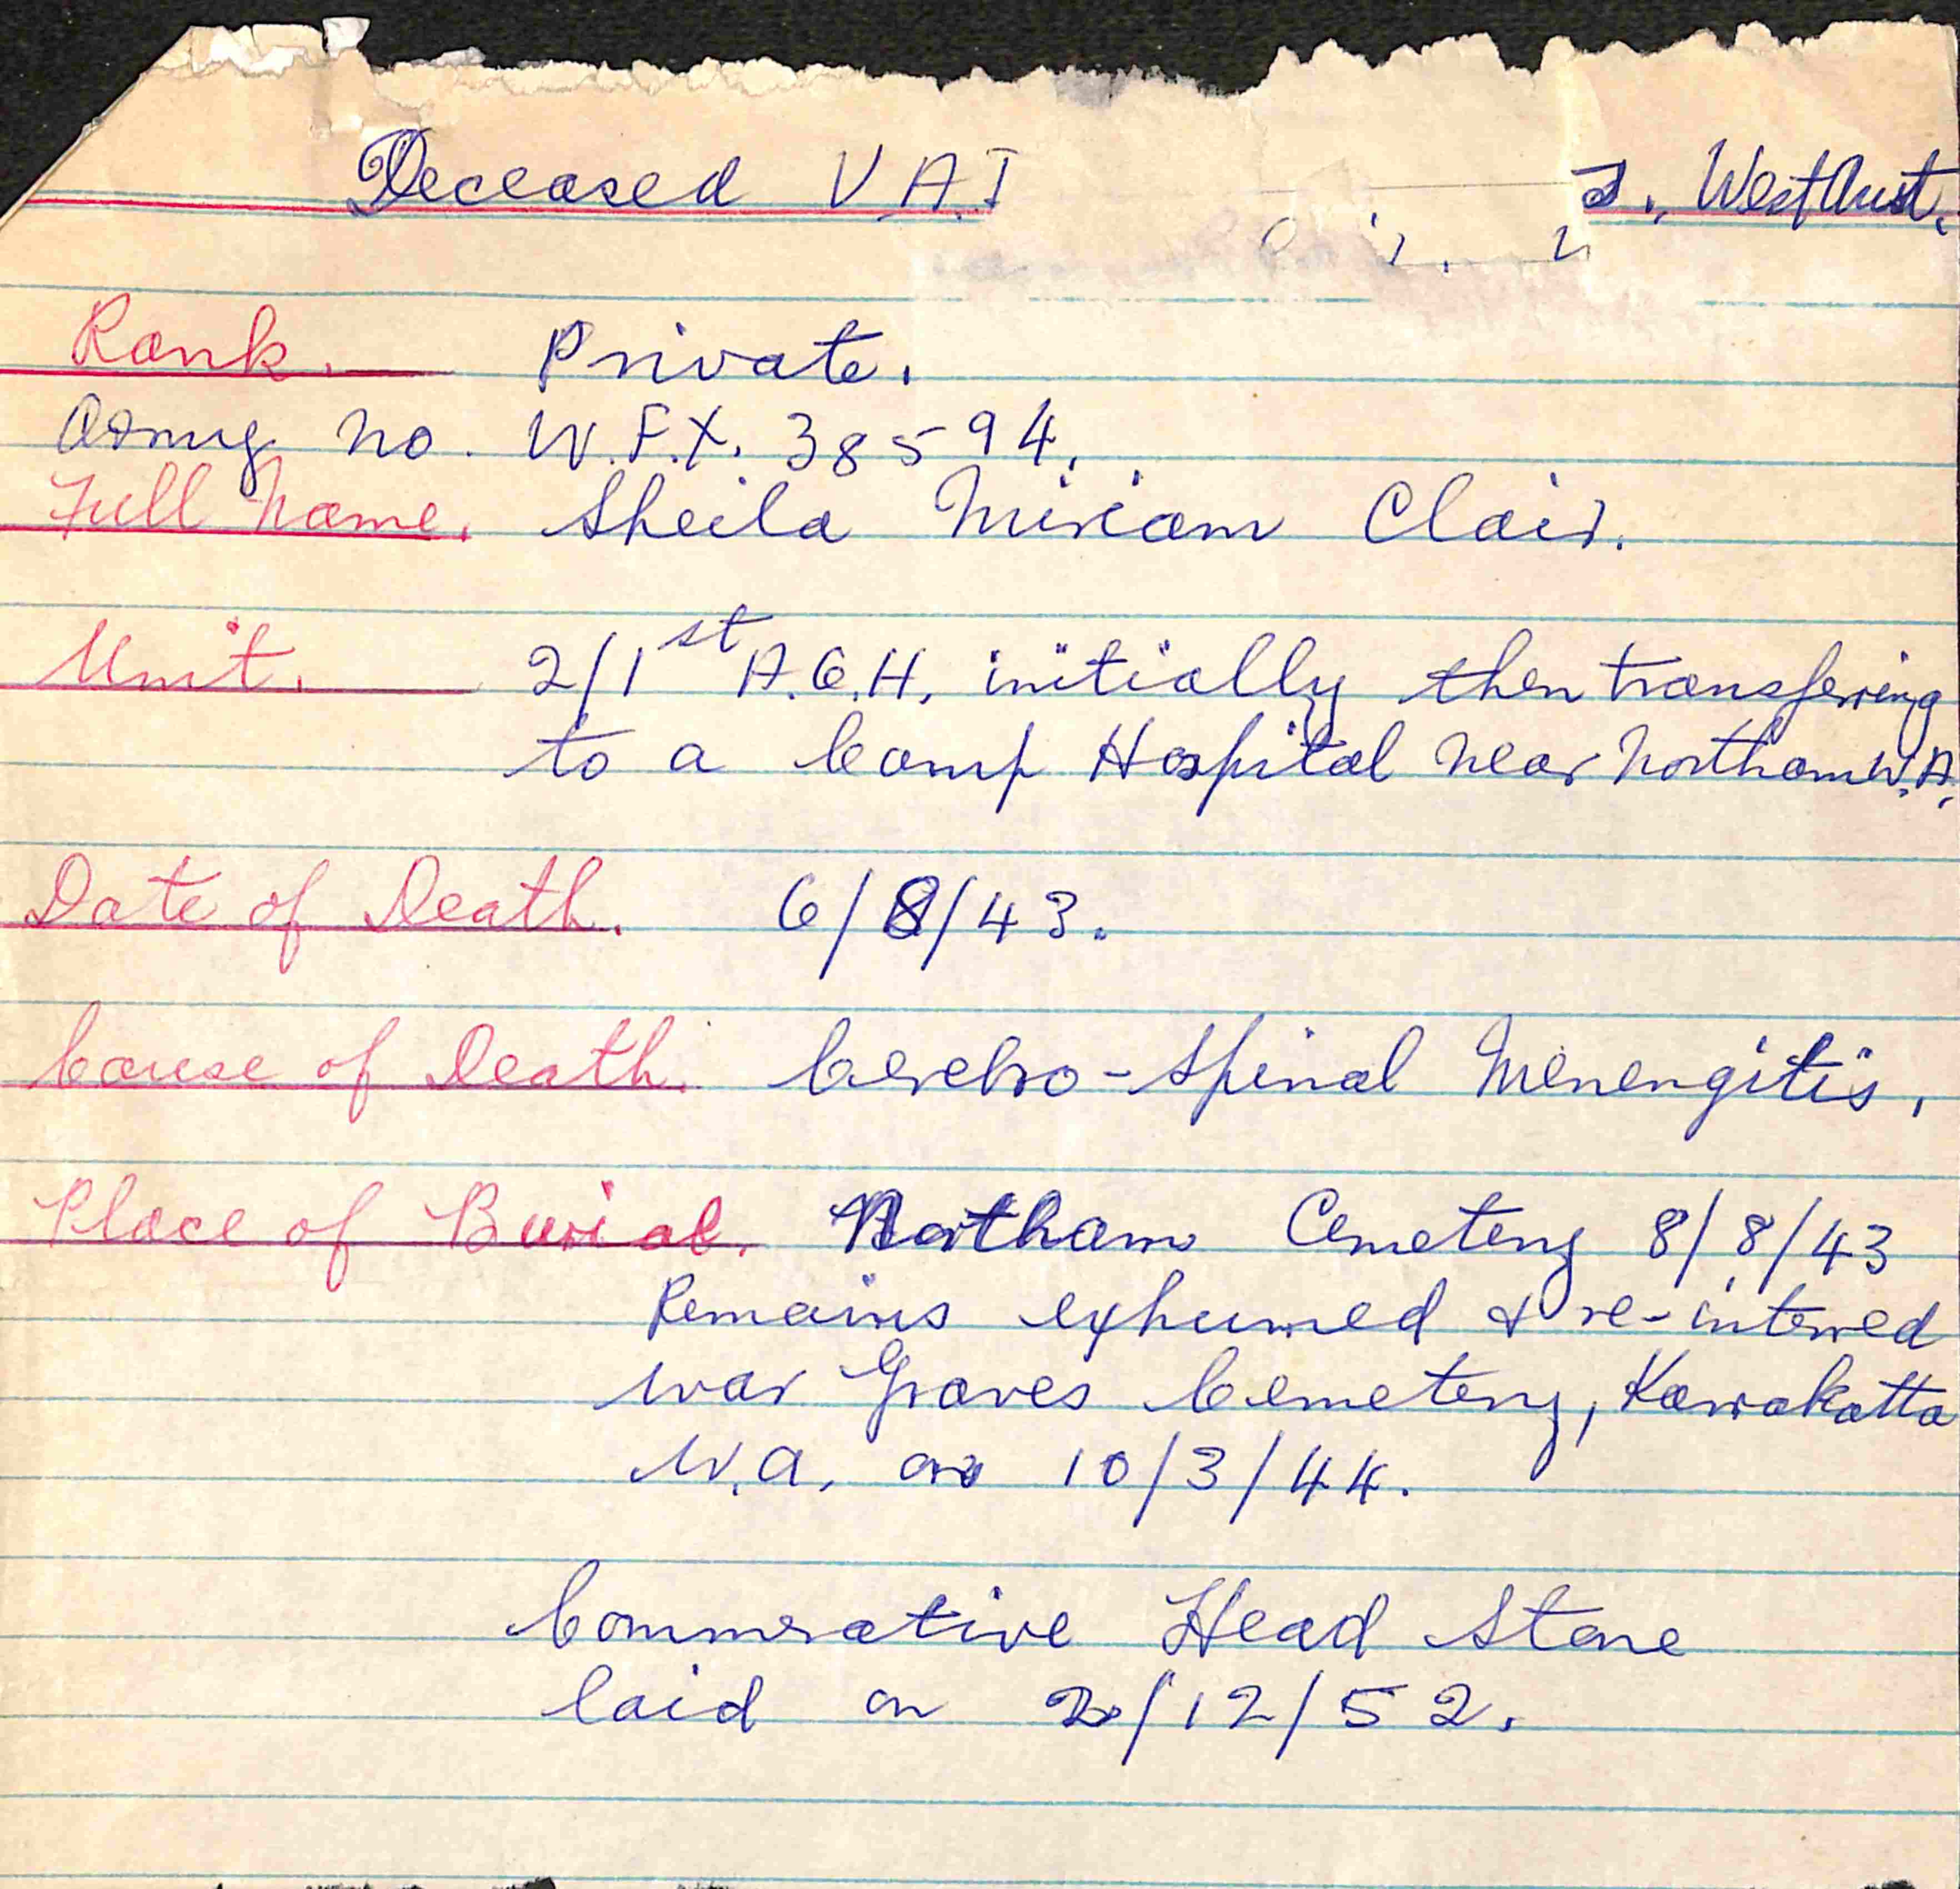 Deceased V.A.
West Aust.
Rank. Private.
Army no. W.F.X. 38594.
Full Name. Sheila Miriam Clair.
Unit. 2/1st A.G.H. initially then transfering
to a Camp Hospital near Northam W.A.
Date of Death. 6/8/43.
Cause of Death. Cerebro-Spinal Menengitis,
Place of Burial. Northam Cemetery 8/8/43
Remains exhumed & re-interred
War Graves Cemetery, Karrakatta
W.A. on 10/3/44.
Commerative Head Stone
laid on /12/52.